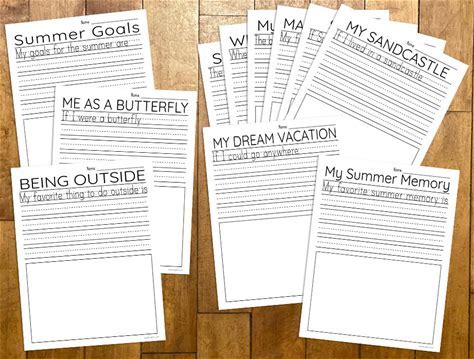 Name
Summer Goals
My goals for the summer are
Name
ME AS A BUTTERFLY
If I were a butterfly
Name
BEING OUTSIDE
My favorite thing to do outside is
The
MY SANDCASTLE
If I lived in a sandcastle
Name
MY DREAM VACATION
If I could go anywhere
Name
My Summer Memory
My favorite summer memory is